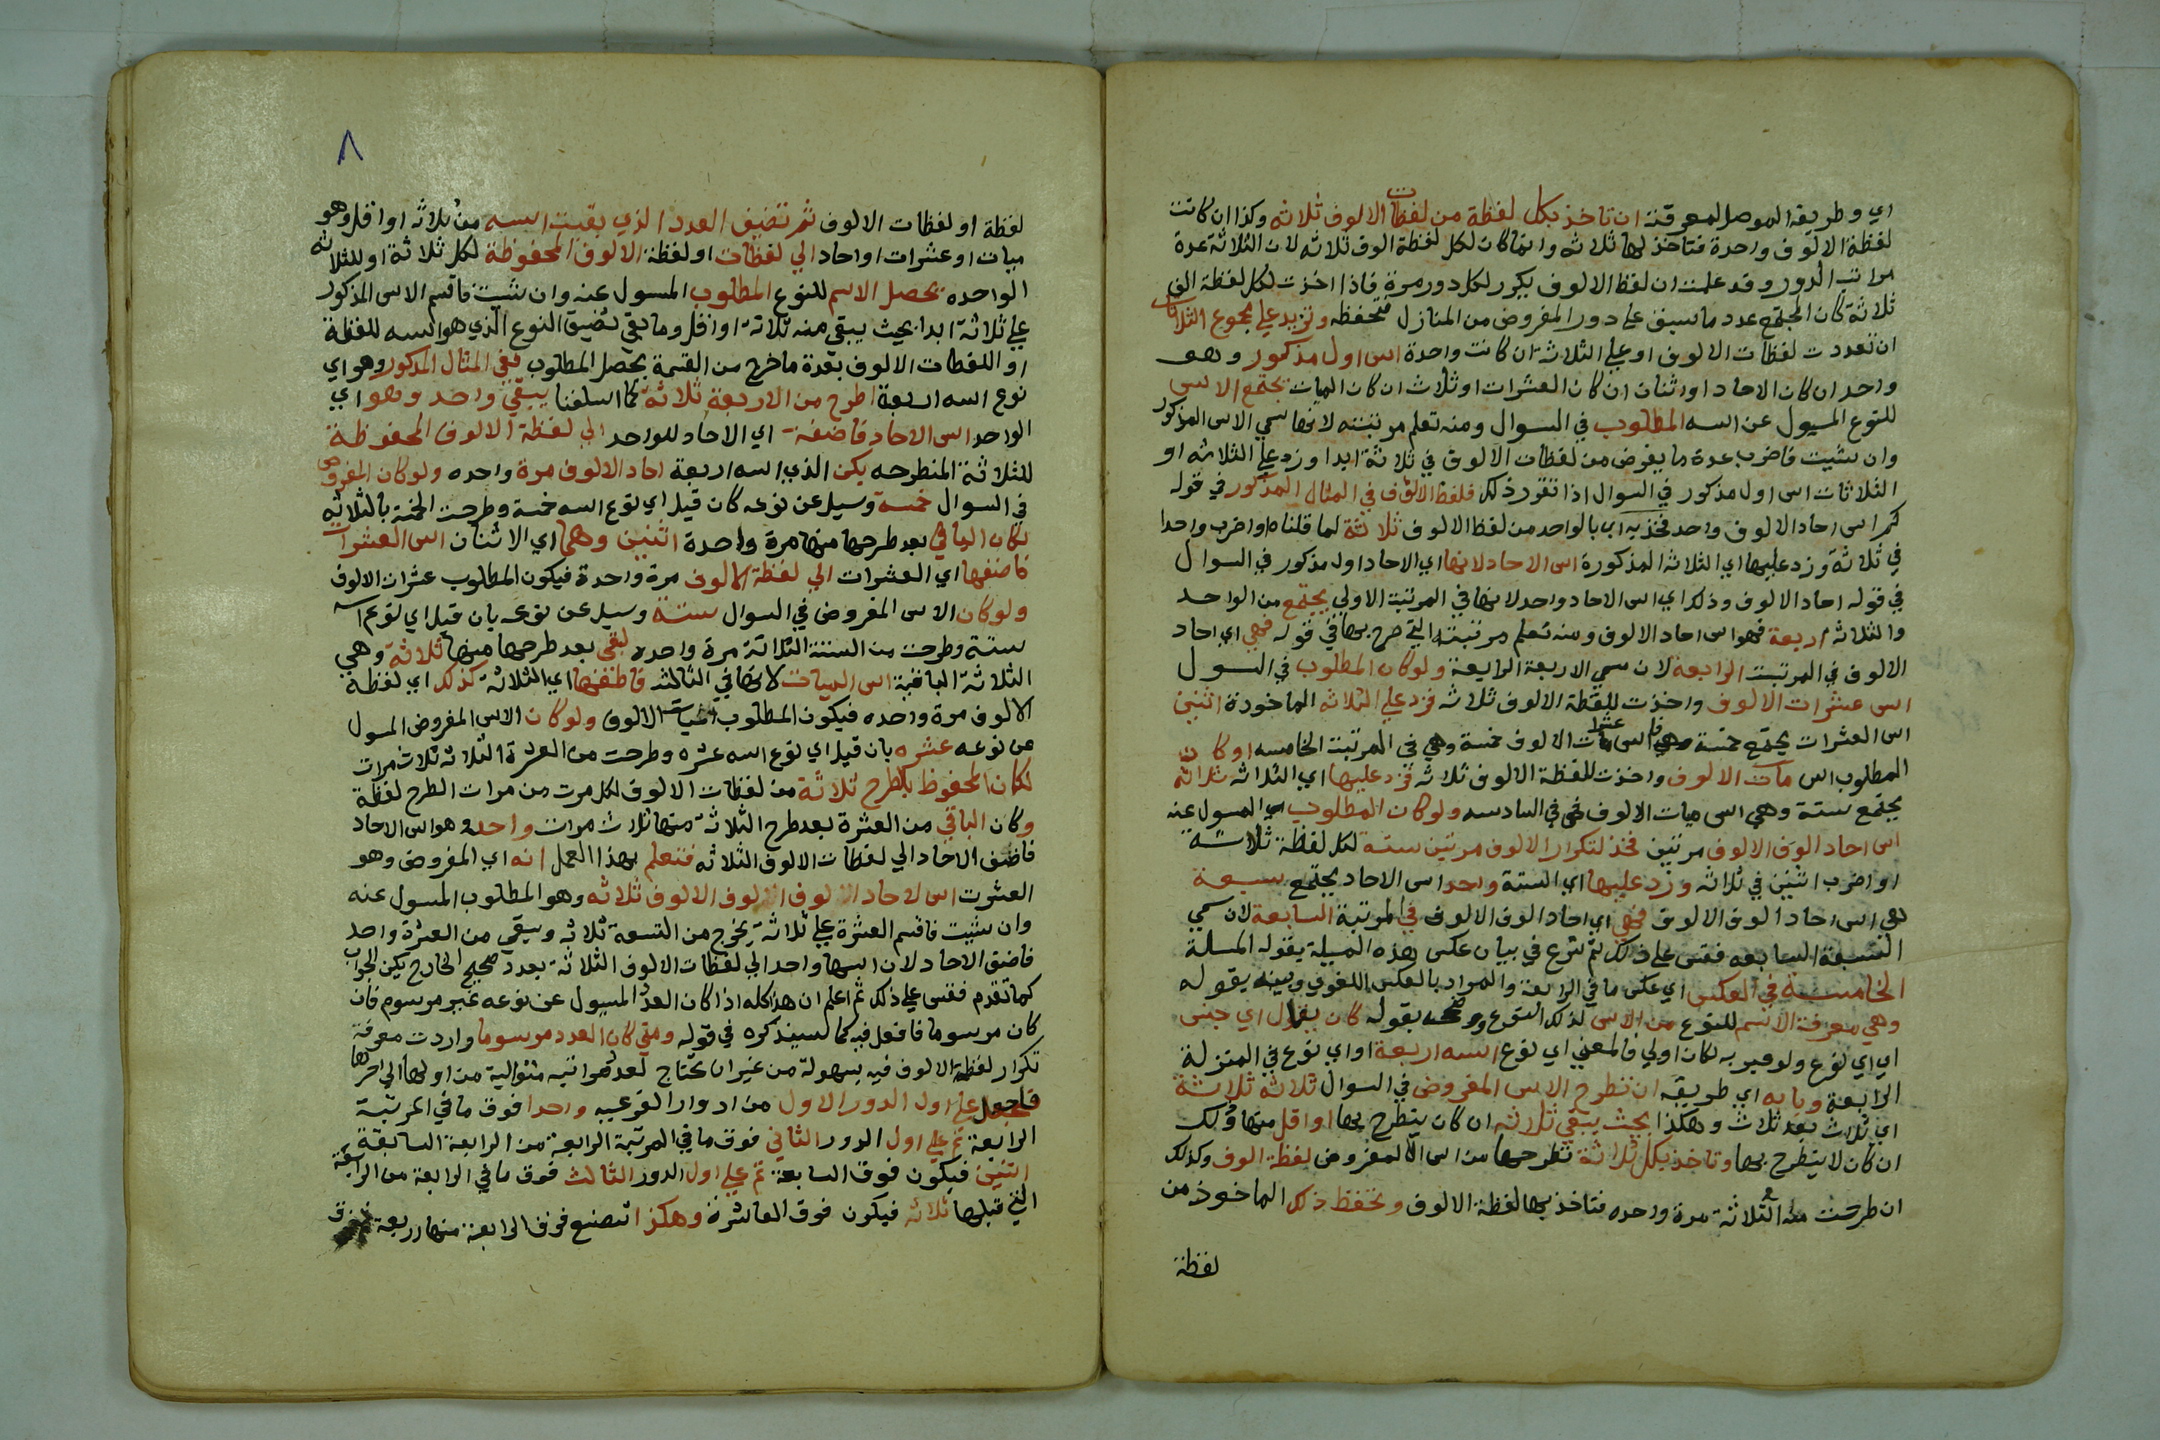 اي وطريقه الموصل لمعرفته ان تاخذ بكل لفظة من لفظات الالوف ثلاثه وكذا ان كانت
لفظة الالوف واحدة فتاخذ لها ثلاثه وانما كان لكل لفظة الوف ثلاثه لان الثلاثة عدة
مراتب الدور وقد علمت ان لفظ الالوف يكرر لكل دور مرة فاذا اخذت لكل لفظة الف
ثلاثة كان المجتمع عدد ما سبق على دور المفروض من المنازل فتحفظه وتزيد علي مجموع الثلاثات
ان تعددت لفظات الالوف او علي الثلاثة ان كانت واحدة اس اول مذكور وهو
واحد ان كان الاحاد او اثنان ان كان العشرات او ثلاث ان كان الميات يجتمع الاس
للنوع المسيول عن اسه المطلوب في السوال ومنه تعلم مرتبته لانها سمي الاس المذكور
وان شيت فاضرب عدة ما يفرض من لفظات الالوف في ثلاثة ابدا وزد علي الثلاثه او
الثلاثات اس اول مذكور في السوال اذا تقرر ذلك فلفظ الالوف في المثال المذكور في قوله
كم اس احاد الالوف واحد فخذ به اي بالواحد من لفظ الالوف ثلاثة لما قلناه او اضرب واحدا
في ثلاثة وزد عليها اي الثلاثه المذكورة اس الاحاد لانها اي الاحاد اول مذكور في السوال
في قوله احاد الالوف وذلك اي اس الاحاد واحد لانها في المرتبة الاولي يجتمع من الواحد
والثلاثه اربعة فهو اس احاد الالوف ومنه تعلم مرتبته التي صرح بها في قوله فهي اي احاد
الالوف في المرتبت الرابعة لان سمي الاربعة الرابعة ولو كان المطلوب في السول
اس عشرات الالوف واخذت للفظة الالوف ثلاثه فزد علي الثلاثه الماخوذة اثنين
اس العشرات يجتمع خمسة وهي اس عشرات الالوف خمسة وهي في المرتبت الخامسه او كان
المطلوب اس مات الالوف واخذت للفظة الالوف ثلاثه فزد عليها اي الثلاثه ثلاثه
يجتمع ستة وهي اس ميات الالوف فهي في السادسه ولو كان المطلوب اي المسول عنه
اس احاد الوف الالوف مرتين فخذ لتكرار الالوف مرتين ستة لكل لفظة ثلاثة
او اضرب اثنين في ثلاثه وزد عليها اي الستة واحد اس الاحاد يجتمع سبعة
هي اس احاد الوف الالوف فهي اي احاد الوف الالوف في المرتبة السابعة لان سمي
السبعة السابعه فقس علي ذلك ثم شرع في بيان عكس هذه المسيلة يقوله المسلة
الخامسة في العكس اي عكس ما في الرابعة والمراد بالعكس اللغوي وبينه يقوله
وهي معرفة الاسم للنوع من الاس لذلك النوع يقوله كان يقال اي جنس
اي اي نوع ولو عبر به لكان اولي فالمعني اي نوع اسه اربعة او اي نوع في المنزلة
الرابعة وبابه اي طريقه ان تطرح الاس المفروض في السوال ثلاثه ثلاثة
اي ثلاث بعد ثلاث وهكذا بحيث يبقي ثلاثه ان كان يتطرح بها او اقل منها وذلك
ان كان لا يتطرح بها وتاخذ بكل ثلاثة تطرحها من اس المفروض لفظة الوف وكذلك
ان طرحت منه الثلاثة مرة واحده فتاخذ بها لفظة الالوف وتحفظ ذلك الماخوذ من
لفظة
٨
لفظة او لفظات الالوف ثم تضيف العدد الذي بقيت اسه من ثلاثه او اقل وهو
ميات او عشرات او احاد الي لفظات او لفظة الالوف المحفوظة لكل ثلاثة او للثلاثه
الواحده يحصل الاسم للنوع المطلوب المسول عنه وان شيت فاقسم الاس المذكور
علي ثلاثة ابدا بحيث يبقي منه ثلاثة او اقل وما بقي تضيف النوع الذي هو اسه للفظة
او اللفظات الالوف بعدة ما خرج من القسمة يحصل المطلوب ففي المثال المذكور وهو اي
نوع اسه اربعة اطرح من الاربعة ثلاثة كما اسلفنا يبقي واحد وهو اي
الواحد اس الاحاد فاضفه اي الاحاد للواحد الي لفظة الالوف المحفوظة
للثلاثة المنطرحه يكن الذي اسه اربعة احاد الالوف مرة واحده ولو كان المفروض
في السوال خمسة وسيل عن نوعه كان قيل اي نوع اسه خمسة وطرحت الخمسة بالثلاثه
لكان الباقي بعد طرحها منها مرة واحدة اثنين وهي اي الاثنان اس العشرات
فاضفها اي العشرات الي لفظة الالوف مرة واحدة فيكون المطلوب عشرات الالوف
ولو كان الاس المفروض في السوال ستة وسيل عن نوعه بان قيل اي نوع اسه
ستة وطرحت من الستة الثلاثة مرة واحده لبقي بعد طرحها منها ثلاثة وهي
الثلاثة الباقية اس الميات لانها في الثالثة فاضفها اي الثلاثة كذلك اي لفظة
الالوف مرة واحده فيكون المطلوب ميات الالوف ولو كان الاس المفروض المسول
عن نوعه عشره بان قيل اي نوع اسه عشره وطرحت من العشرة الثلاثه ثلاث مرات
لكان المحفوظ بالطرح ثلاثة من لفظات الالوف لكل مرت من مرات الطرح لفظة
وكان الباقي من العشرة بعد طرح الثلاثة منها ثلاث مرات واحد هو اس الاحاد
فاضف الاحاد الي لفظات الالوف الثلاثه فتعلم بهذا العمل انه اي المفروض وهو
العشرت اس لاحاد الالوف الالوف الالوف ثلاثه وهو المطلوب المسول عنه
وان شيت فاقسم العشرة علي ثلاثة يخرج من التسعة ثلاثه ويبقي من العشرة واحد
فاضف الاحاد لان اسها واحد الي لفظات الالوف الثلاثة بعدد صحيح الخارج يكن الجواب
كما تقدم فقس علي ذلك ثم اعلم ان هذا كله اذا كان العدد المسيول عن نوعه غير مرسوم فان
كان مرسوما فافعل فيه كما سيذكره في قوله ومتي كان العدد مرسوما واردت معرفة
تكرار لفظة الالوف فيه بسهولة من غير ان تحتاج لعد مراتبه متوالية من اولها الي اخرها
فاجعل علي اول الدور الاول من ادوار الفرعيه واحدا فوق ما في المرتبة
الرابعة ثم علي اول الدور الثاني فوق ما في المرتبة الرابعة من الرابعة السابقة
اثنين فيكون فوق السابعة ثم علي اول الدور الثالث فوق ما في الرابعة من الرابعة
التي قبلها ثلاثه فيكون فوق العاشرة وهكذا تصنع فوق الرابعة منها اربعة